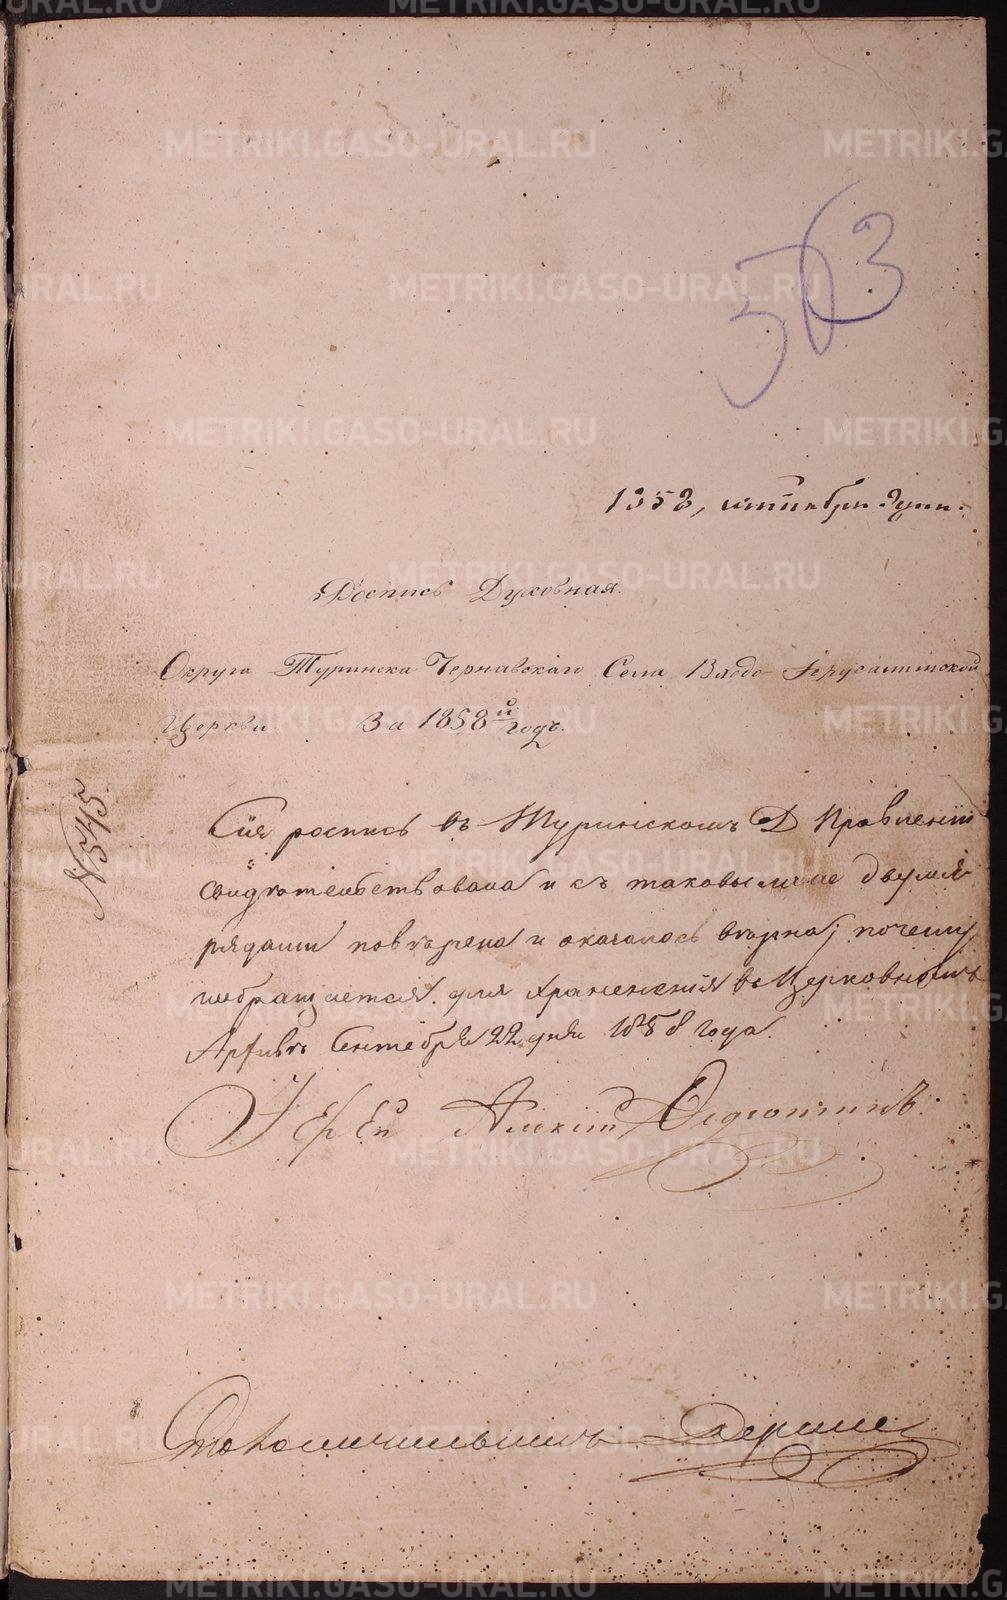 53
1858, октября дня.
Роспись Духовная.
Округа Туринска Чернавскаго Села Входо-Іерусалимской
Церкви За 1858й годъ.
№ 545
Сія роспись въ Туринскомъ Д Правленіи
свидѣтельствована и съ таковыми же двумя
рядами повѣрена и оказалось вѣрна; почему
и обращается для храненія въ Церковномъ
Архивѣ Сентября 22 дня 1858 года.
Іерей Алексій